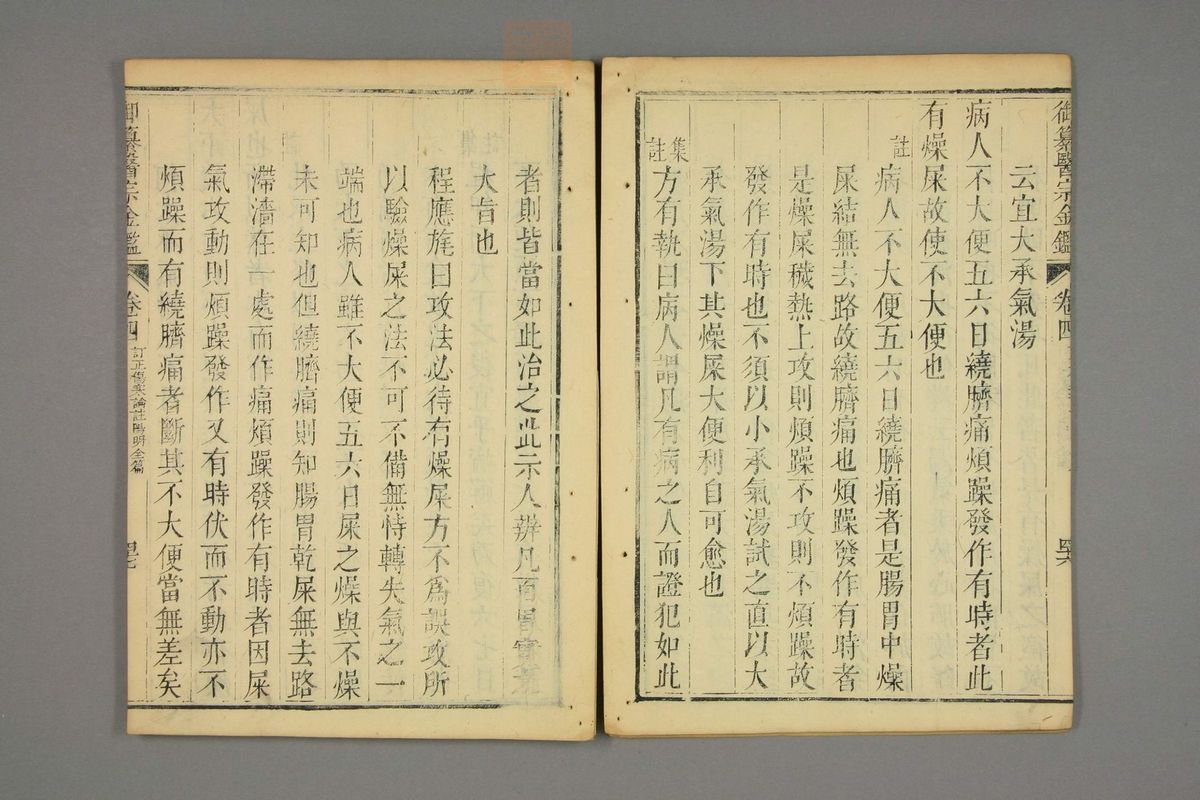 御纂醫宗金鑑 卷四
四六
云宜大承氣湯
病人不大便五六日繞臍痛煩躁發作有時者此
有燥屎故使不大便也
註
病人不大便五六日繞臍痛者是腸胃中燥
屎結無去路故繞臍痛也煩躁發作有時者
是燥屎穢熱上攻則煩躁不攻則不煩躁故
發作有時也不須以小承氣湯試之直以大
承氣湯下其燥屎大便利自可愈也
集註
方有執曰病人謂凡有病之人而證犯如此
者則皆當如此治之此示人辨凡百胃實之
大旨也
程應旄曰攻法必待有燥屎方不為誤攻所
以驗燥屎之法不可不備無恃轉失氣之一
端也病人雖不大便五六日屎之燥與不燥
未可知也但繞臍痛則知腸胃乾屎無去路
滯濇在一處而作痛煩躁發作有時者因屎
氣攻動則煩躁發作又有時伏而不動亦不
煩躁而有繞臍痛者斷其不大便當無差矣
御纂醫宗金鑑 卷四 訂正傷寒論註陽明全篇
四七